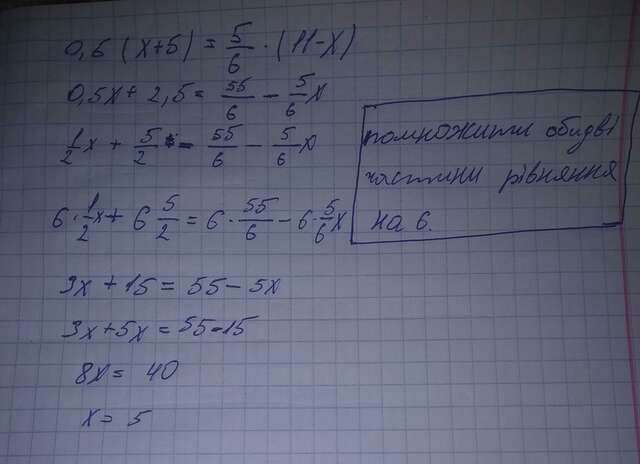 0,6 (x+5) = 5/6 · (11-x)
0,5x + 2,5 = 55/6 - 5/6 x
1/2 x + 5/2 = 55/6 - 5/6 x
помножити обидві
частини рівняння
на 6.
6 · 1/2 x + 6 5/2 = 6 · 55/6 - 6 · 5/6 x
3x + 15 = 55 - 5x
3x + 5x = 55 - 15
8x = 40
x = 5